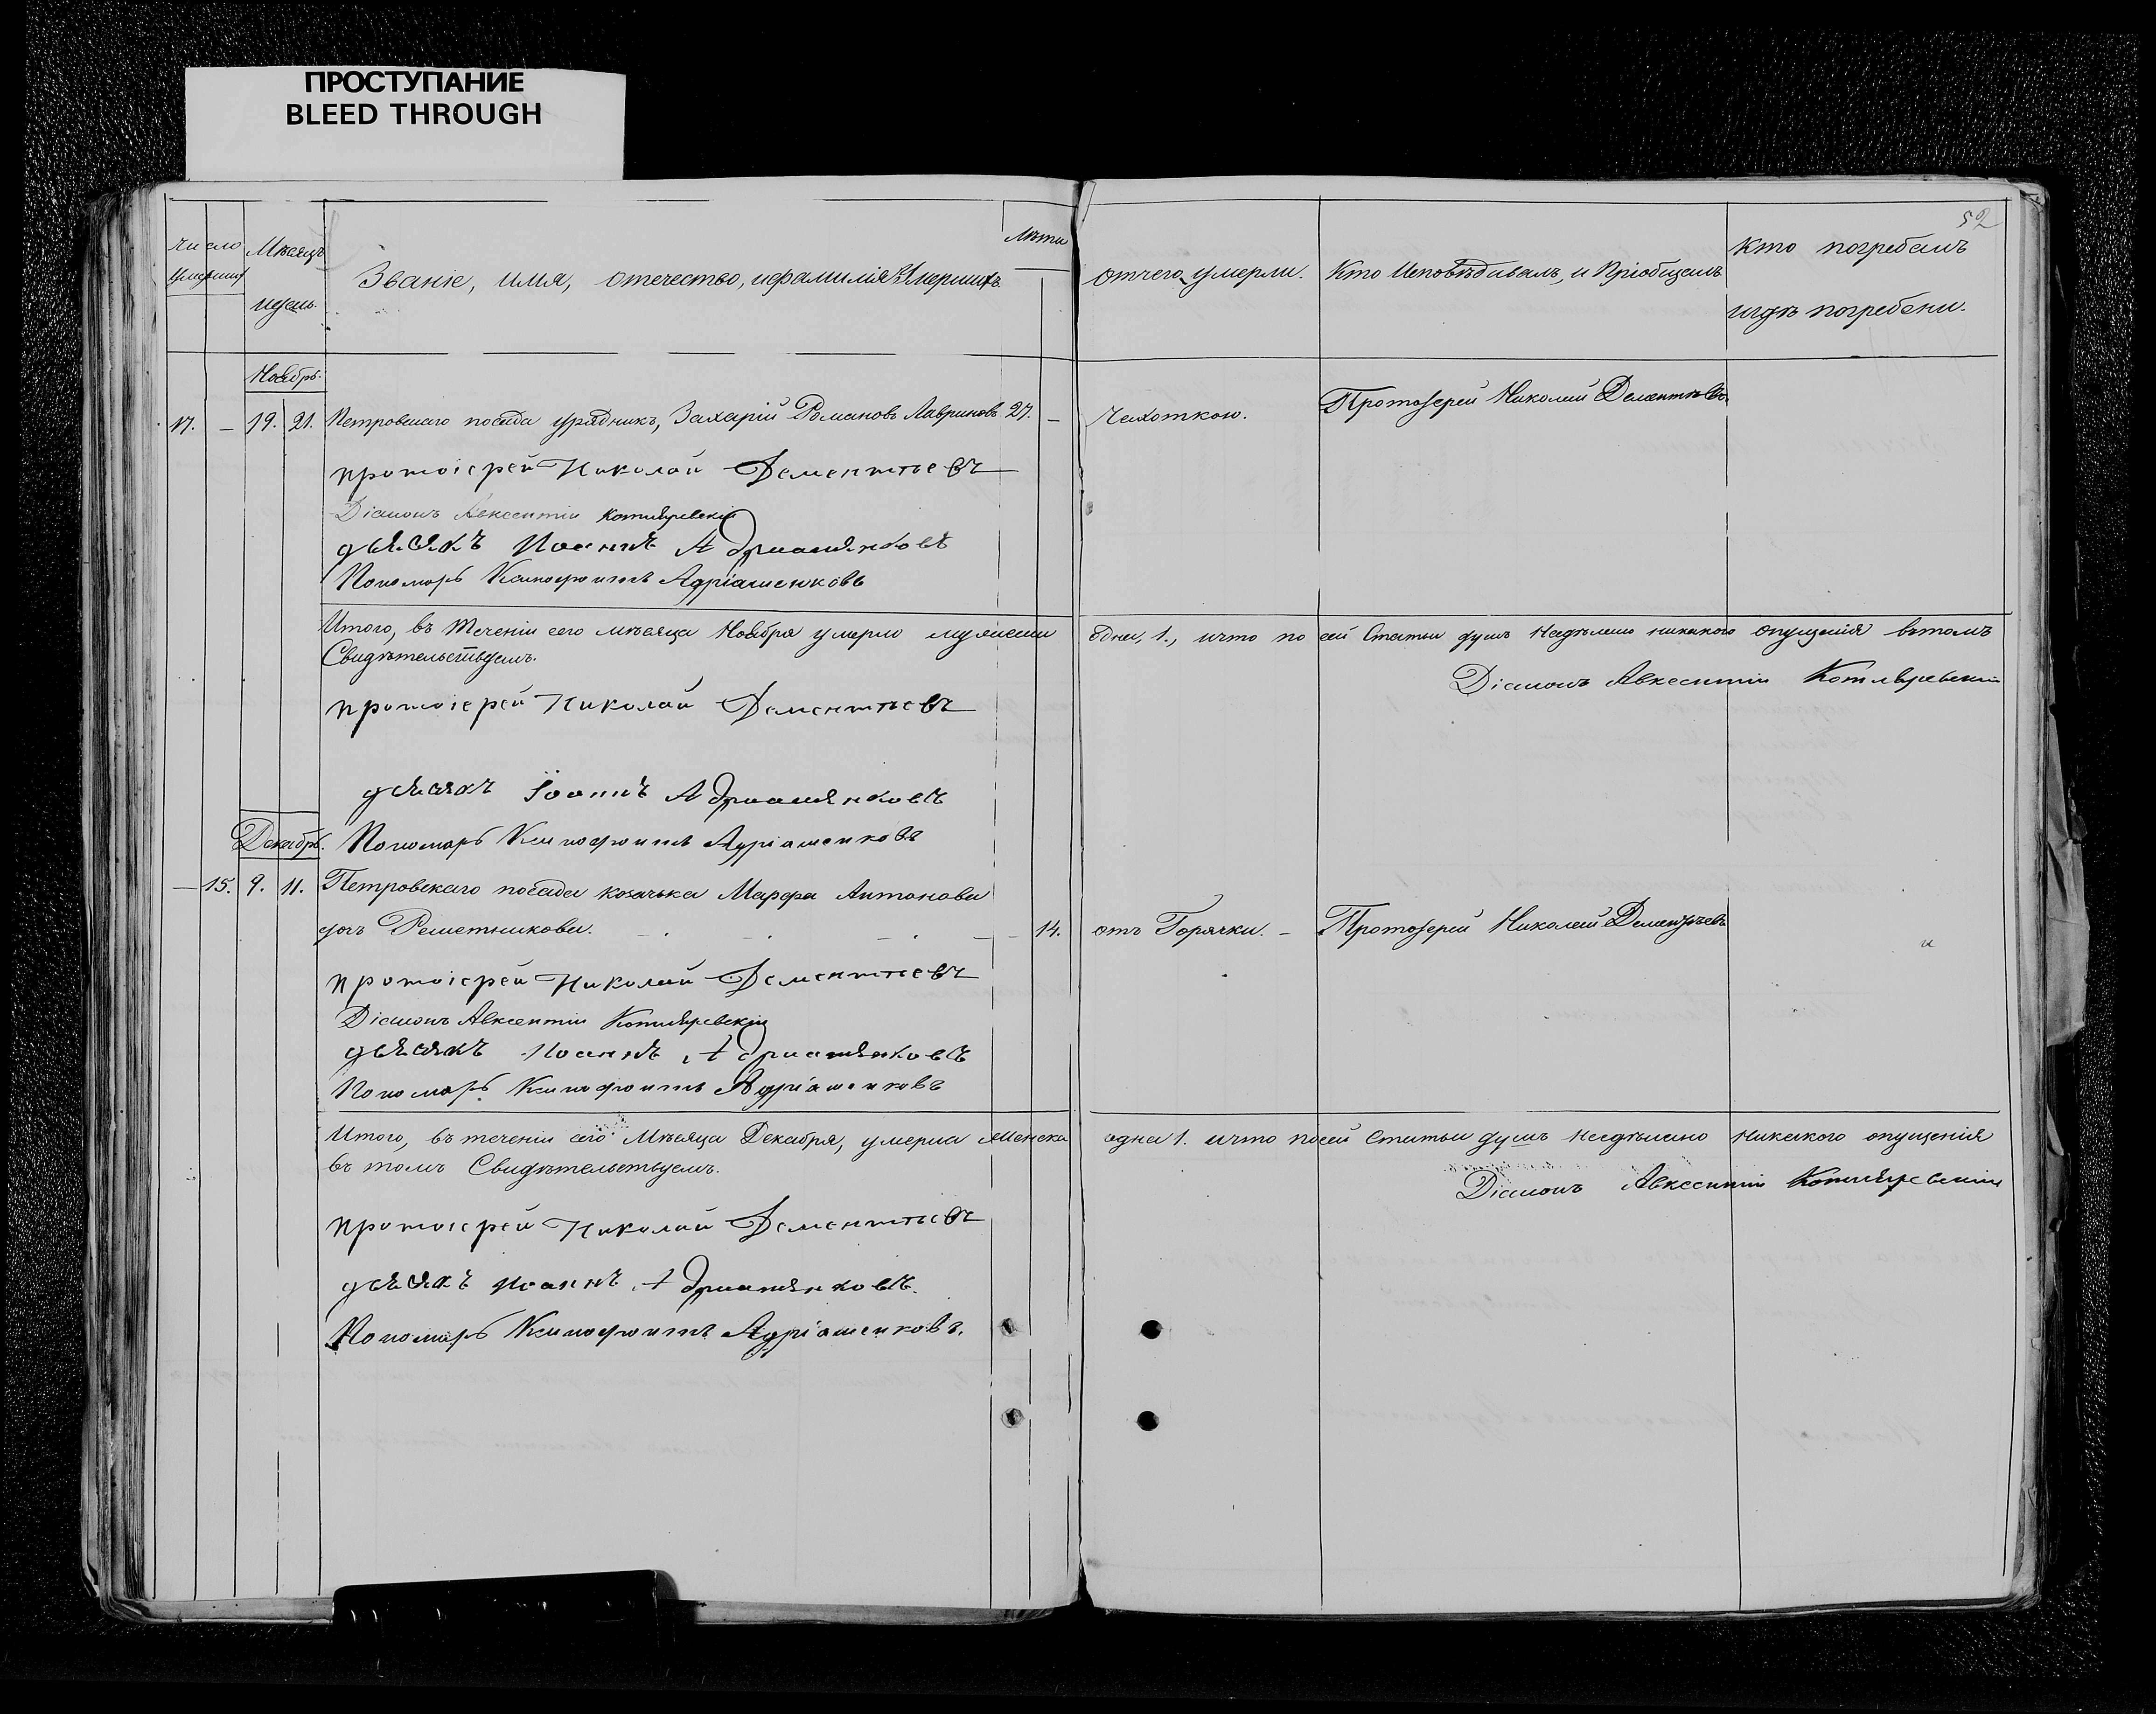 ПРОСТУПАНИЕ
BLEED THROUGH
52
Число умершихъ
Мѣсяцъ идень.
Званіе, имя, отечество, ифамилія Умершихъ
Лѣта
отчего умерли.
Кто Исповѣдивалъ, и Пріобщалъ
Кто погребалъ
игдѣ погребени.
Ноябрь.
17. — 19. 21. Петровскаго посада урядникъ, Захарій Романовъ Лавриновъ 27. — Чахоткою. Протоіерей Николай Дементьевъ
протоіерей Николай Дементьевъ
Діаконъ Авксентій Котляревскій
дьячокъ Иоаннъ Адриашенковъ
Пономарь Ксинофонтъ Адріашенковъ
Итого, въ теченіи сего мѣсяца Ноября умерло мужеска одна, 1., ичто по сей Статьи душъ Несдѣлано никакого опущенія втомъ
Свидѣтельствуемъ.
Діаконъ Авксентій Котляревскій
протоіерей Николай Дементьевъ
дьячокъ Іоаннъ Адриашенковъ
Декабрь.
Пономарь Ксинофонтъ Адріашенковъ
— 15. 9. 11. Петровскаго посада козачька Марфа Антонова
дочь Решетникова. — 14. отъ Горячки. — Протоіерей Николай Дементьевъ
протоіерей Николай Дементьевъ
Діаконъ Авксентій Котляревскій
дьячокъ Иоаннъ Адриашенковъ
Пономарь Ксинофонтъ Адріашенковъ
Итого, въ теченіи сего Мѣсяца Декабря, умерла Женска одна 1. ичто посей Статьи душъ Несдѣлано Никакого опущенія
въ томъ Свидѣтельствуемъ.
Діаконъ Авксентій Котляревскій
протоіерей Николай Дементьевъ
дьячокъ Иоаннъ Адриашенковъ.
Пономарь Ксинофонтъ Адріашенковъ.